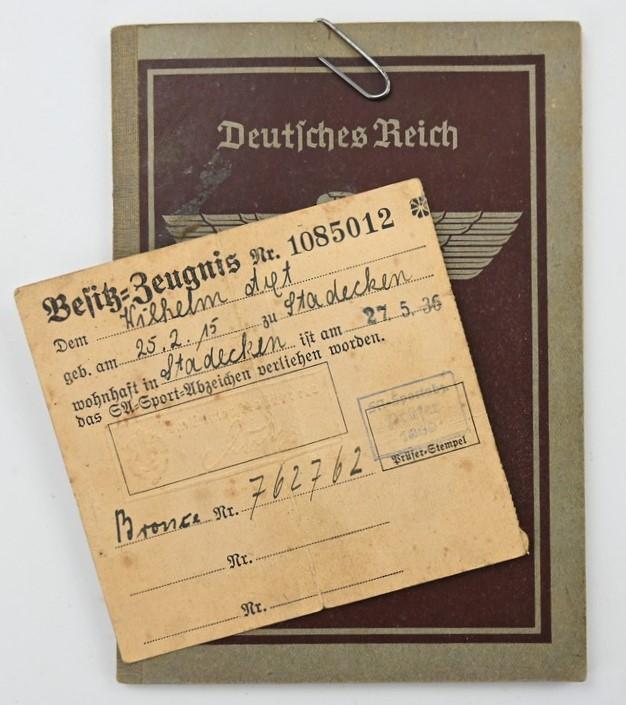 Deutsches Reich
Besitz-Zeugnis Nr. 1085012
Dem Wilhelm
geb. am 25. 2. 15 zu Stadecken
wohnhaft in Stadecken ist am 27. 5. 36
das SA-Sport-Abzeichen verliehen worden.
Prüfer
Prüfer-Stempel
Bronce Nr. 762762
Nr.
Nr.